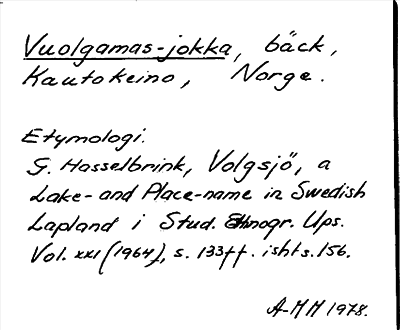 Vuolgamas-jokka, bäck,
Kautokeino, Norge.
Etymologi.
G. Hasselbrink, Volgsjö, a
Lake- and Place-name in Swedish
Lapland i Stud. Ethnogr. Ups.
Vol. XXI (1964), s. 133ff. ishts. 156.
A-MM 1978.